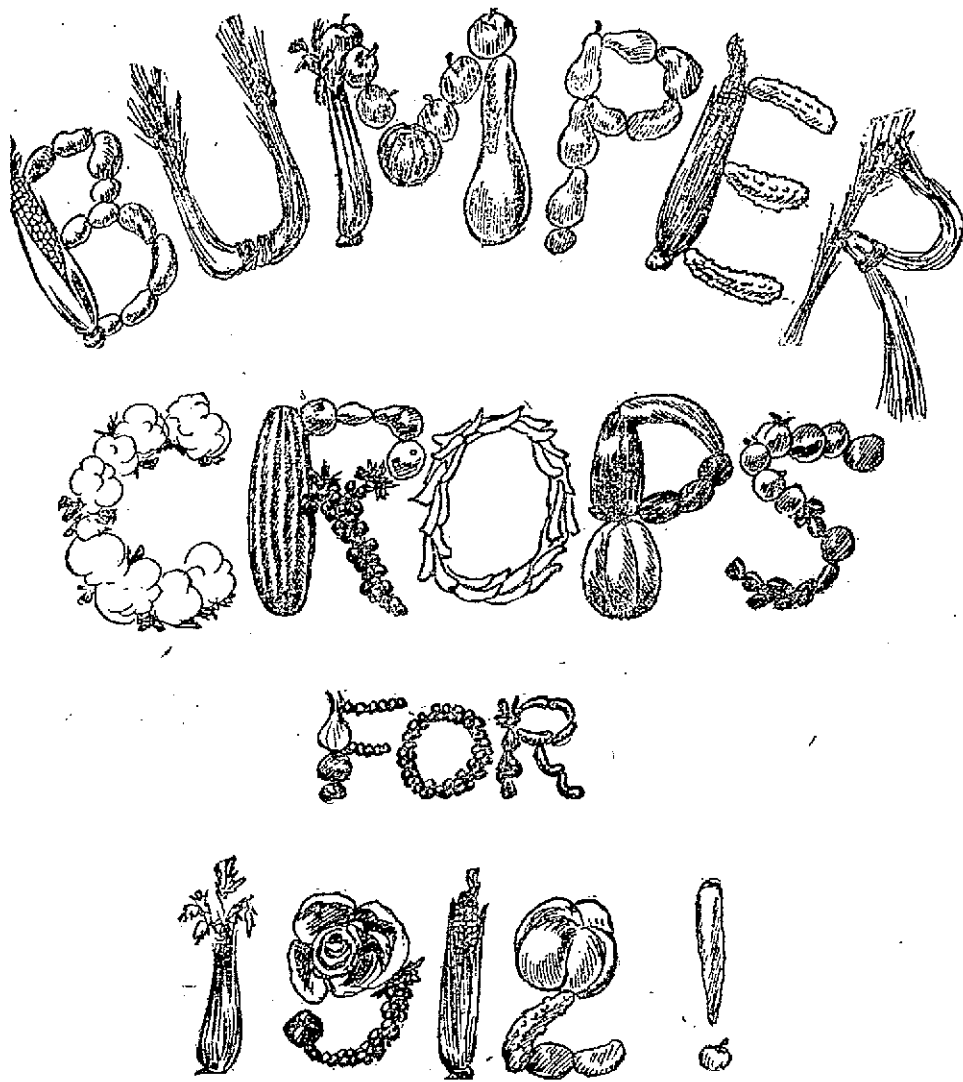 BUMPER
CROPS
FOR
1912!